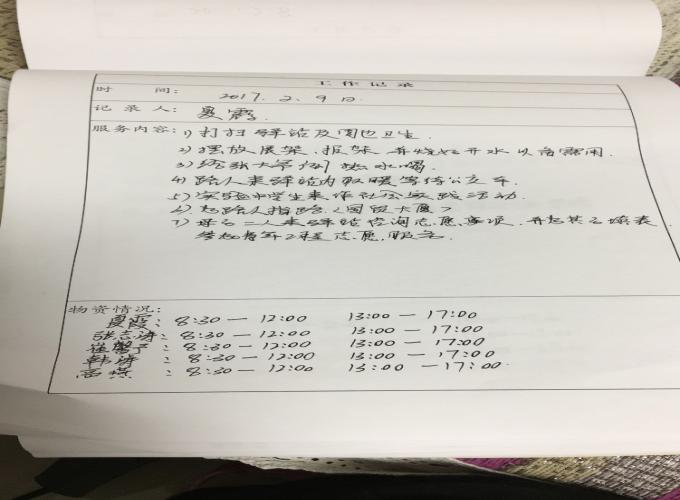 工作记录
时 间: 2017. 2. 9日
记录人: 夏霞
服务内容: 1) 打扫驿站及周边卫生.
2) 摆放展架、报架、并烧好开水以备需用.
3) 给张大爷倒热水喝.
4) 路人来驿站内取暖等待公立车.
5) 实验中学生来作社会实践活动.
6) 为路人指路.<国贸大厦>
7) 二人来驿站咨询志愿事项,并 填表
志愿服务.
物资情况:
夏霞: 8:30 — 12:00 13:00 — 17:00
张志涛: 8:30 — 12:00 13:00 — 17:00
崔馨予: 8:30 — 12:00 13:00 — 17:00
韩涛: 8:30 — 12:00 13:00 — 17:00
: 8:30 — 12:00 13:00 — 17:00.